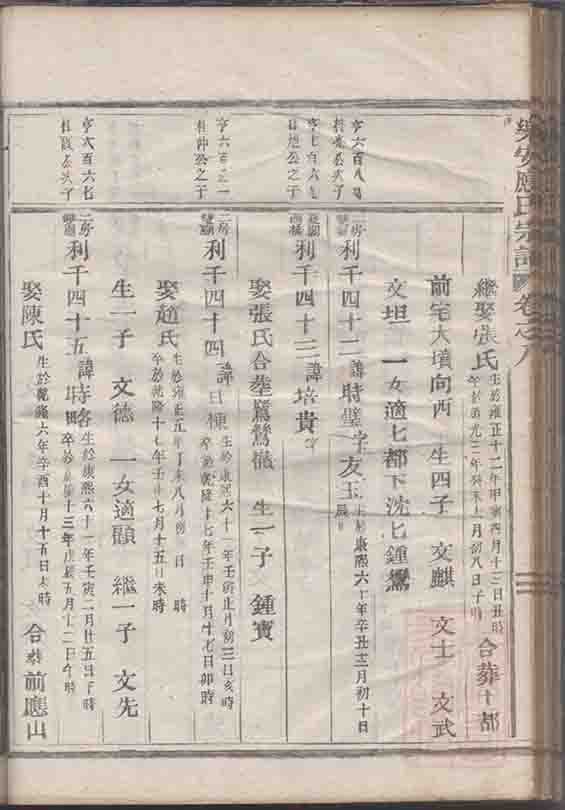 樂安應氏宗譜 卷之八
繼娶張氏 生於雍正十二年甲寅四月十三日丑時 卒於道光三年癸未七月初八日子時 合葬十都
前宅大墳向西 生四子 文麒 文士 文武
文坦 一女適七都下沈
亨六百八
二房 利千四十二 諱時璧 字友玉 生於康熙六十年辛丑十二月初十日
亨七百六 之子
利千四十三 諱培貴
娶張氏合葬鴛鴦 生一子 鍾寶
亨六百 桂仲公之子
二房 利千四十四 諱 生於康熙六十一年壬寅正月初三日亥時 卒於乾隆十七年壬申十月十七日卯時
娶趙氏 生於雍正五年丁未八月 日 時 卒於乾隆 七月十五日未時
生一子 文德 一女適顧 繼一子 文先
亨六百六七 公次子
二房 利千四十五 諱時 生於康熙六十一年壬寅二月廿五日 時 卒於乾隆十三年戊辰五月十二日午時
娶陳氏 生於乾隆六年辛酉十月十五日未時 合葬前應山